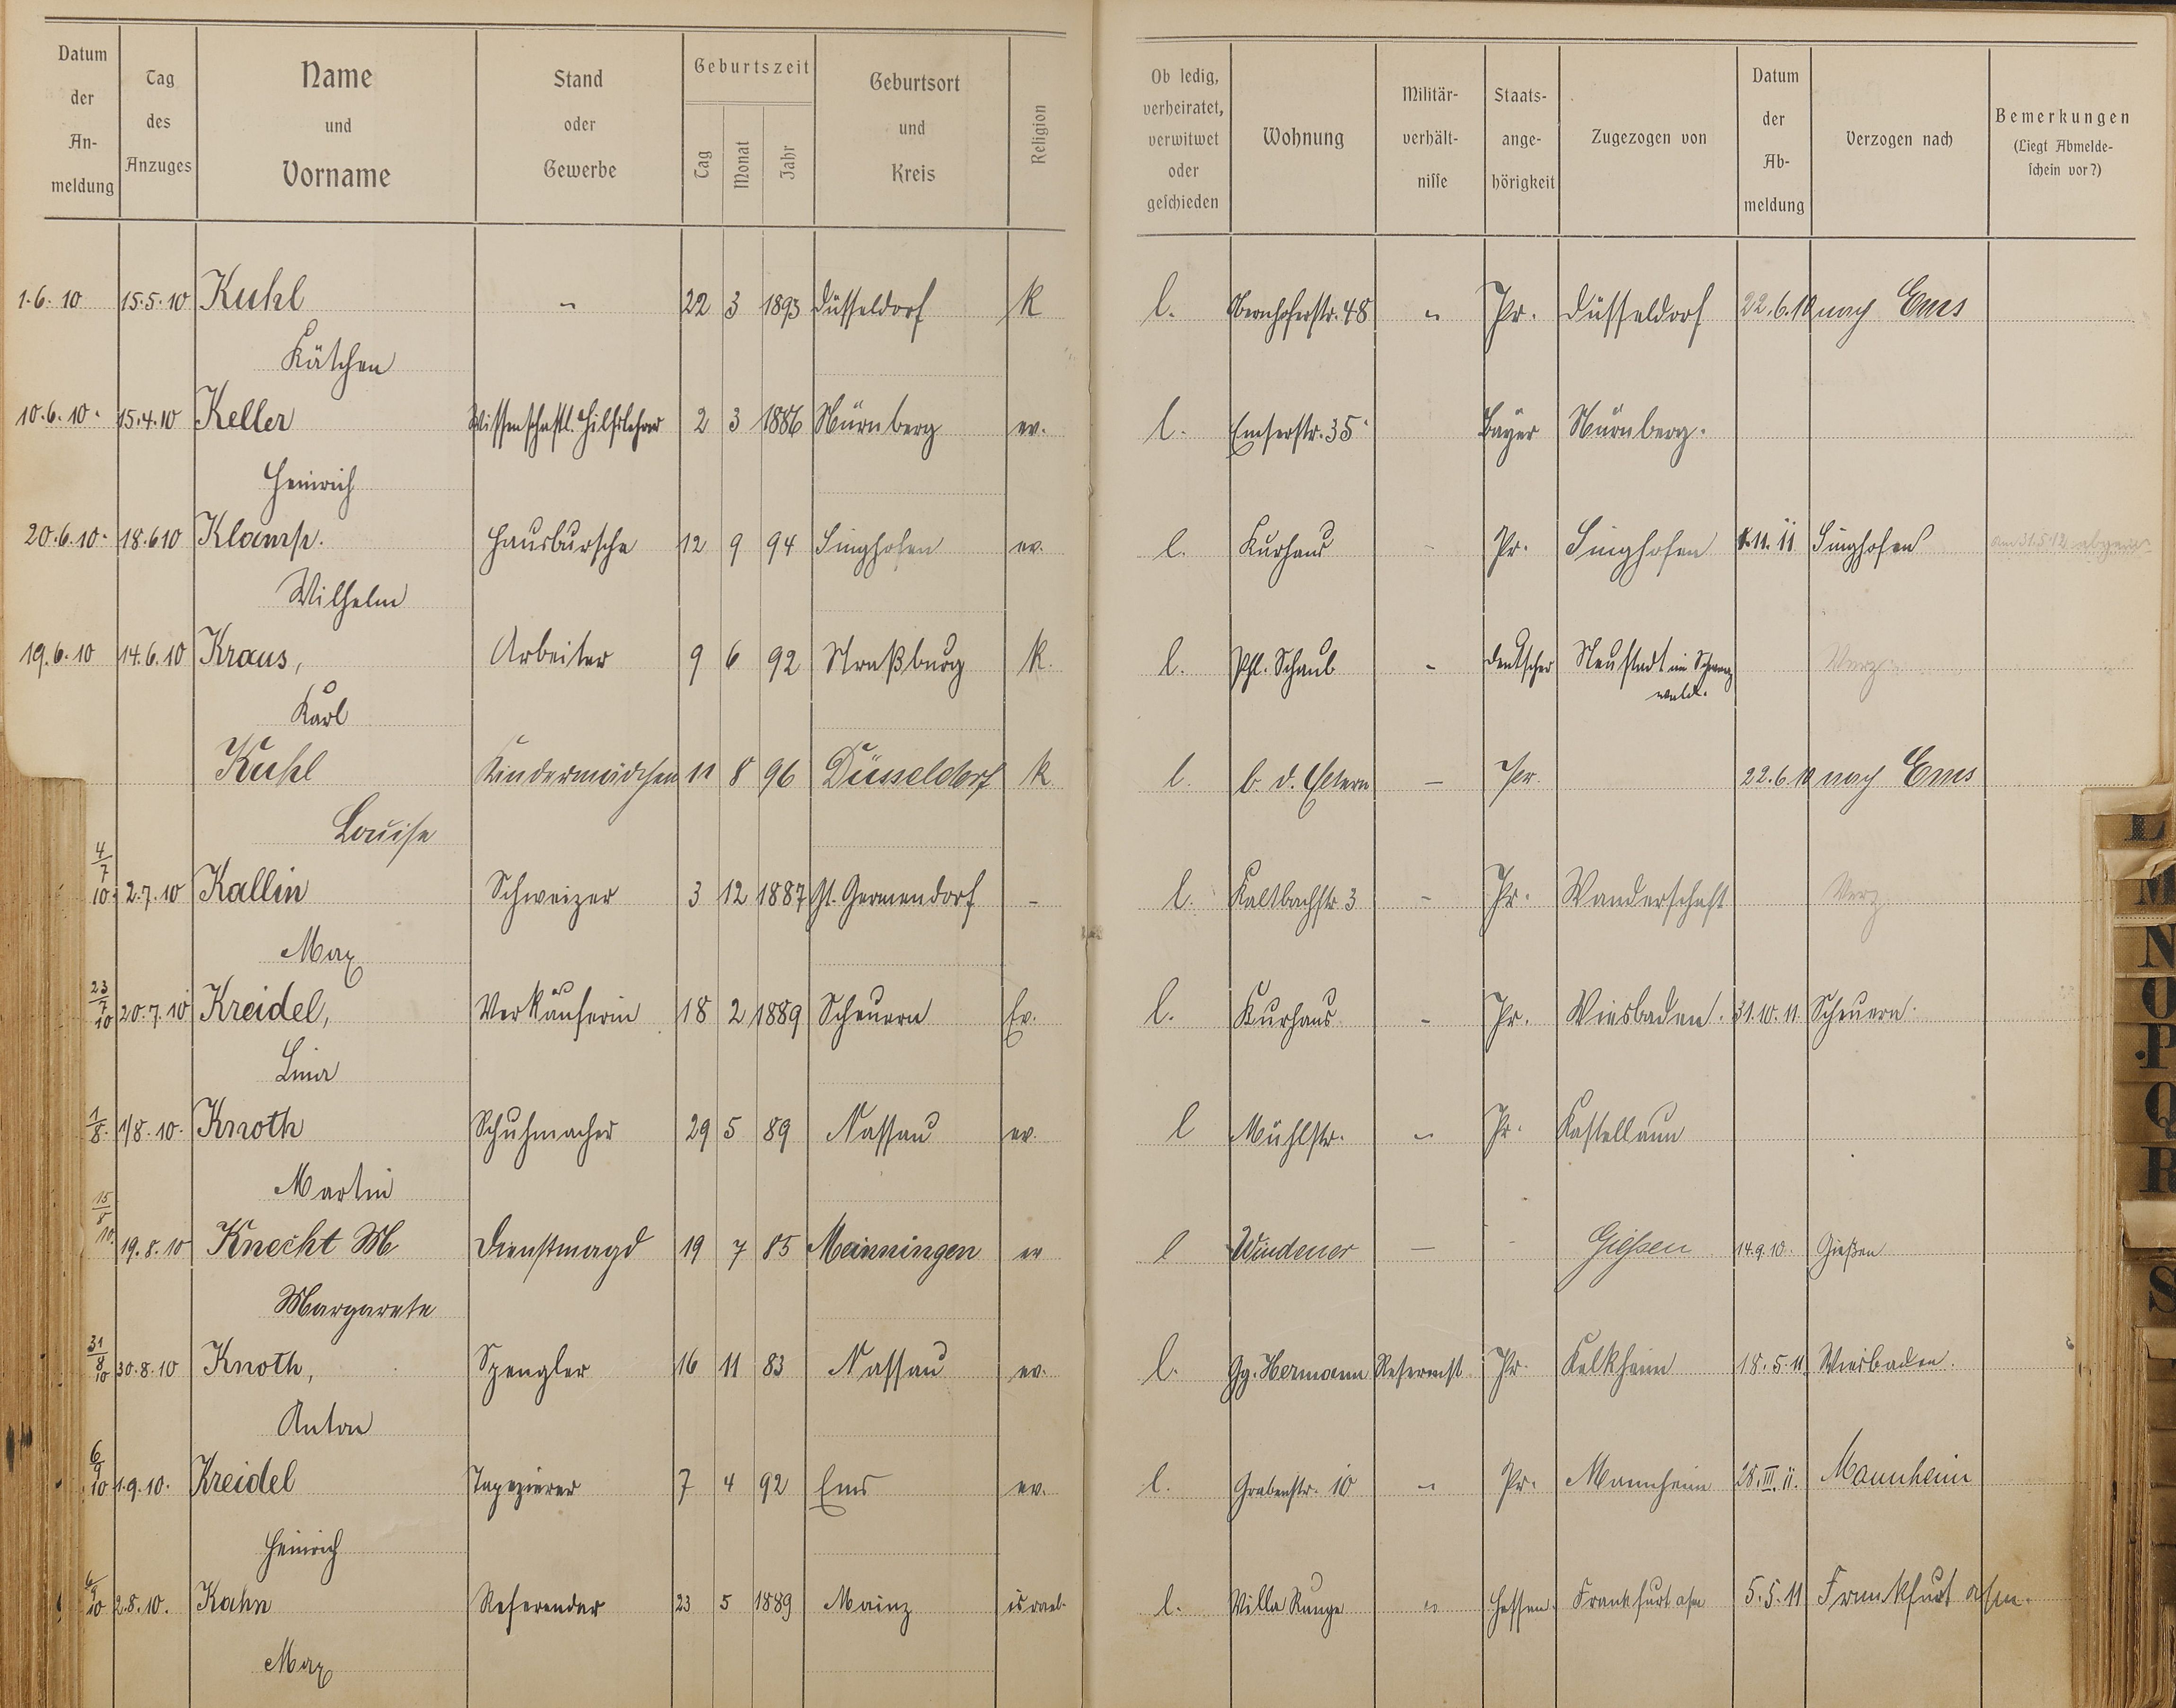 Datum der Anmeldung | Tag des Anzuges | Name und Vorname | Stand oder Gewerbe | Geburtszeit Tag Monat Jahr | Geburtsort und Kreis | Religion | Ob ledig, verheiratet, verwitwet oder geschieden | Wohnung | Militärverhältnisse | Staatsangehörigkeit | Zugezogen von | Datum der Abmeldung | Verzogen nach | Bemerkungen (Liegt Abmeldeschein vor?)
1.6.10 15.5.10 Kuhl " 22 3 1893 Düsseldorf K l. Obernhoferstr. 48 " Pr. Düsseldorf 22.6.10 nach Ems
Kätchen
10.6.10. 15.4.10 Keller Wissenschaftl. Hilfslehrer 2 3 1886 Nürnberg ev. l. Emserstr. 35 Bayer Nürnberg.
Heinrich
20.6.10. 18.6 10 Klamp. Hausbursche 12 9 94 Singhofen ev. l. Kurhaus - Pr. Singhofen 1.11.11 Singhofen am 31.5.12
Wilhelm
19.6.10 14.6.10 Kraus, Arbeiter 9 6 92 Straßburg K. l. Phl. Schaub - Deutscher Neustadt im Schwarz Verz.
wald.
Karl
Kuhl Kindermädchen 11 8 96 Düsseldorf K l. b. d. Eltern - Pr. 22.6.10 nach Ems
Louise
4/7 10. 2.7.10 Kallin Schweizer 3 12 1887 Germendorf - l. Kaltbachstr 3 - Pr. Wanderschaft Verz.
Max
23/7 10 20.7.10 Kreidel, Verkäuferin 18 2 1889 Scheuern Ev. l. Kurhaus - Pr. Wiesbaden. 31.10.11. Scheuern.
Lina
1/8. 1/8.10. Knoth Schuhmacher 29 5 89 Nassau ev. l Mühlstr. " Pr. Kastellaun
Martin
15/8 10. 19.8.10 Knecht M Dienstmagd 19 7 85 Meinningen ev l Windener - - Giessen 14.9.10. Gießen
Margarete
31/8 10 30.8.10 Knoth, Spengler 16 11 83 Nassau ev. l. Gg. Hermann Reservist Pr. Kelkheim 18.5.11 Wiesbaden.
Anton
6/9 10 1.9.10. Kreidel Tapezierer 7 4 92 Ems ev. l. Grabenstr. 10 " Pr. Mannheim 28.III.11. Mannheim
Heinrich
6/9 10 2.8.10. Kahn Referendar 23 5 1889 Mainz israel. l. Villa Runge " Hessen. Frankfurt a/m 5.5.11 Frankfurt a/m.
Max
L
M
N
O
P
Q
R
S